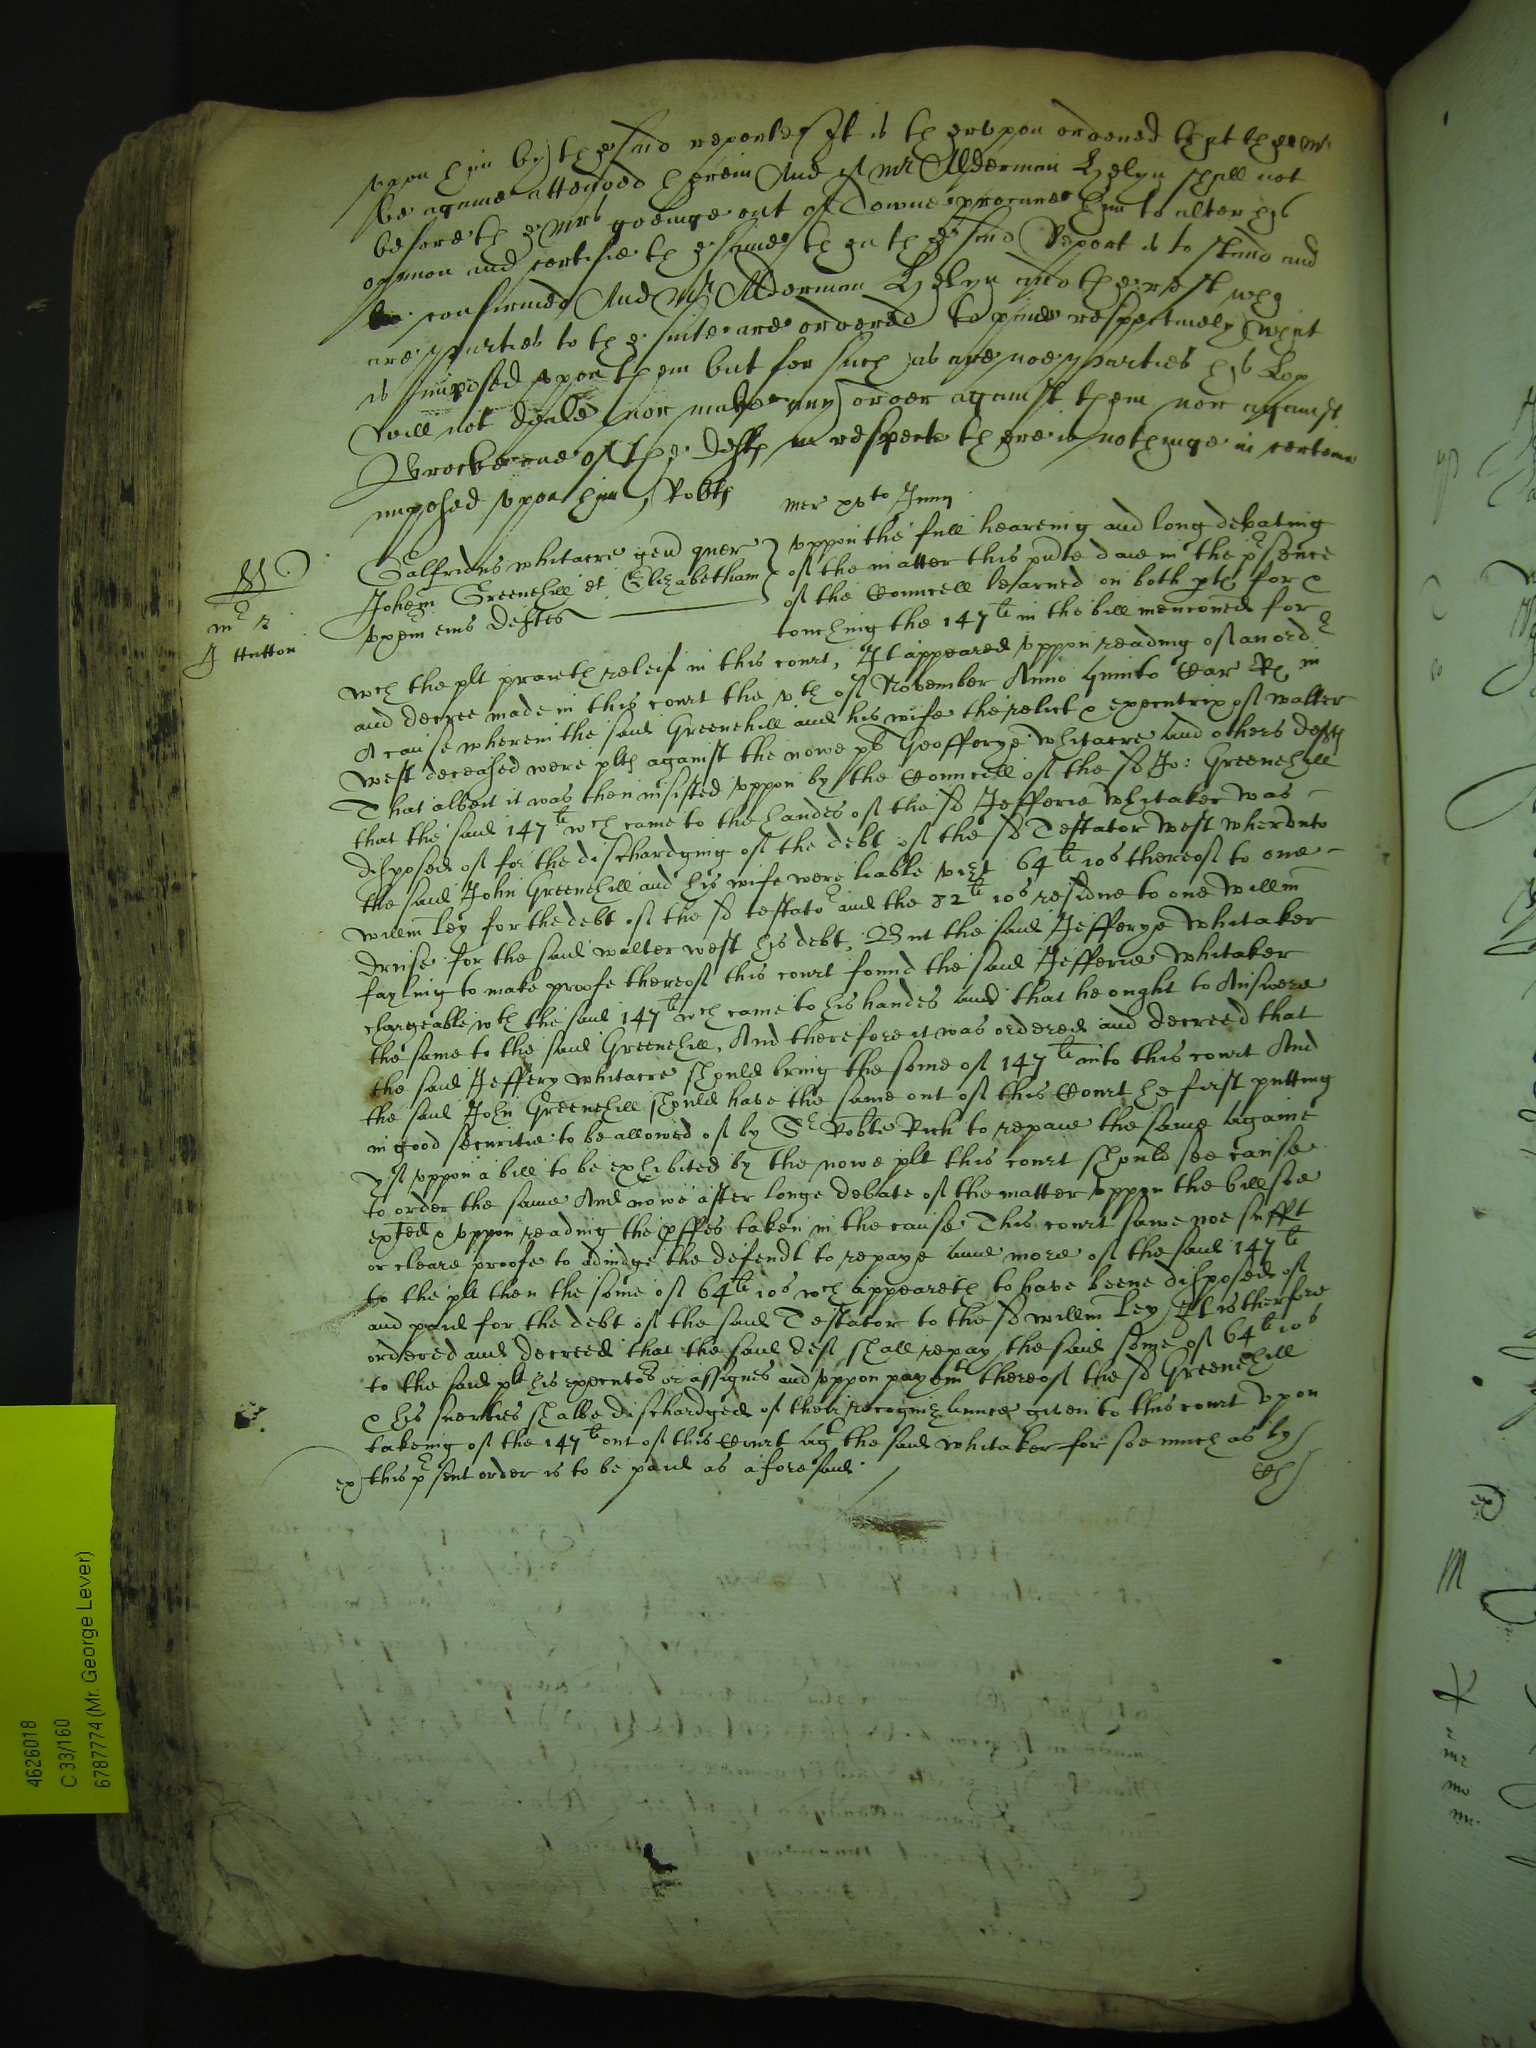 vpon him by the said reporte It is thervpon ordered that the mrs
be againe attended herein And if Mr Alderman shall not
before the mrs goeinge out of Towne procure him to alter his
opinion and certifie the same then the said Report is to stand and
be confirmed And Mr Alderman and the rest who
are parties to the suite are ordered to respectiuely what
is imposed vpon them but for such as are noe parties his Lop
will not deale nor make any order against them nor against
Brocke one of the defts in respecte there is nothinge in certeine
imposed vpon him
mer xvto Junij
W
mr r
J Hutton
Galfridus whitacre gen quer
Johem Greenehill et Elizabetham
vxem eius deftes
vppon the full hearenig and long debating
of the matter this pnte daie in the prsence
of the Councell learned on both pts for &
touching the 147li in the bill menconed for
wch the plt praieth releif in this court, It appeared vppon reading of an ordr
and decree made in this court the vth of November Anno quinto Car Rs in
A cause wherein the said Greenehill and his wife the relict & executrix of walter
west deceased were plts against the nowe pl Geofferye whitacre and others defts
That albeit it was then insisted vppon by the Councell of the sd Jo: Greenehill
that the said 147li wch came to the handes of the sd Jefferie whitaker was
disposed of for the dischardging of the debt of the sd Testator west wherunto
the said John Greenehill and his wife were liable vizt 64li 10s thereof to one
willm Ley for the debt of the sd testator and the 82li 10s residue to one willm
Druse for the said walter west his debt, But the said Jefferye whitaker
fayling to make proofe thereof this court found the said Jefferie whitaker
chargeable wth the said 147li wch came to his handes and that he ought to Answere
the same to the said Greenehill, And therefore it was ordered and decreed that
the said Jeffery whitacre should bring the some of 147li into this court And
the said John Greenehill should have the same out of this Court he first putting
in good securitie to be allowed of by Sr Robte Rich to repaie the same againe
yf vppon a bill to be exhibited by the nowe plt this court should see cause
to order the same And nowe after longe debate of the matter vppon the bill soe
exted & vppon reading the taken in the cause This court sawe noe sufft
or cleare proofe to adiudge the defendt to repaye anie more of the said 147li
to the plt then the some of 64li 10s wch appeareth to have beene disposed of
and paid for the debt of the said Testator to the sd willm Ley, It is therfore
ordered and decreed that the said deft shall repay the said some of 64li 10s
to the said plt his executors or assignes and vppon paymt thereof the sd Greenehill
& his suerties shalbe dischardged of their recognizannce given to this court vpon
takeing of the 147li out of this Court agt the said whitaker for soe much as by
ex) this prsent order is to be paid as aforesaid
4626018
C 33/160
6787774 (Mr. George Lever)